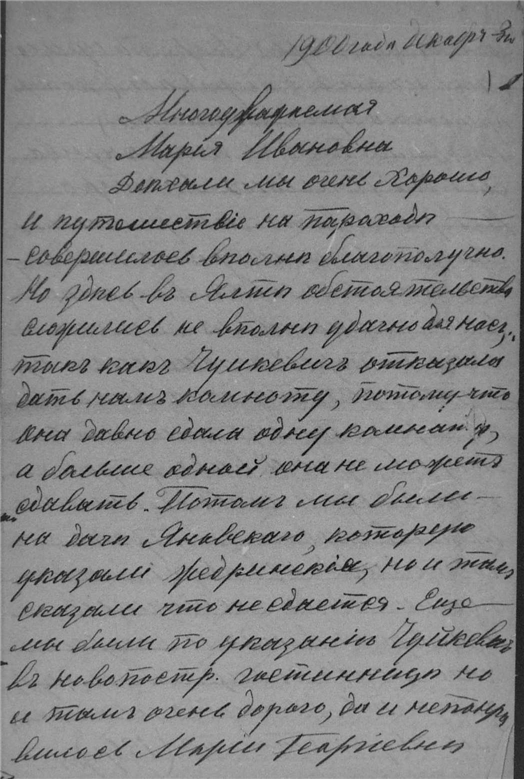 1900 года декабрь 3го
Многоуважаемая
Марія Ивановна
Доѣхали мы очень хорошо,
и путешествіе на пароходѣ
совершилось вполнѣ благополучно.
Но здѣсь въ Ялтѣ обстоятельства
сложились не вполнѣ удачно для насъ,
такъ какъ Чуйкевичъ отказала
дать намъ комноту, потому что
она давно сдала одну комнату,
а больше одной она не можетъ
сдавать. Потомъ мы были
на дачѣ Яновскаго, которую
указали Жедринскія, но и тамъ
сказали что не сдается. Еще
мы были по указанію Чуйкевичъ
въ новопостр. гостинницѣ но
и тамъ очень дорого, да и непонра
вилось Маріи Георгіевнѣ